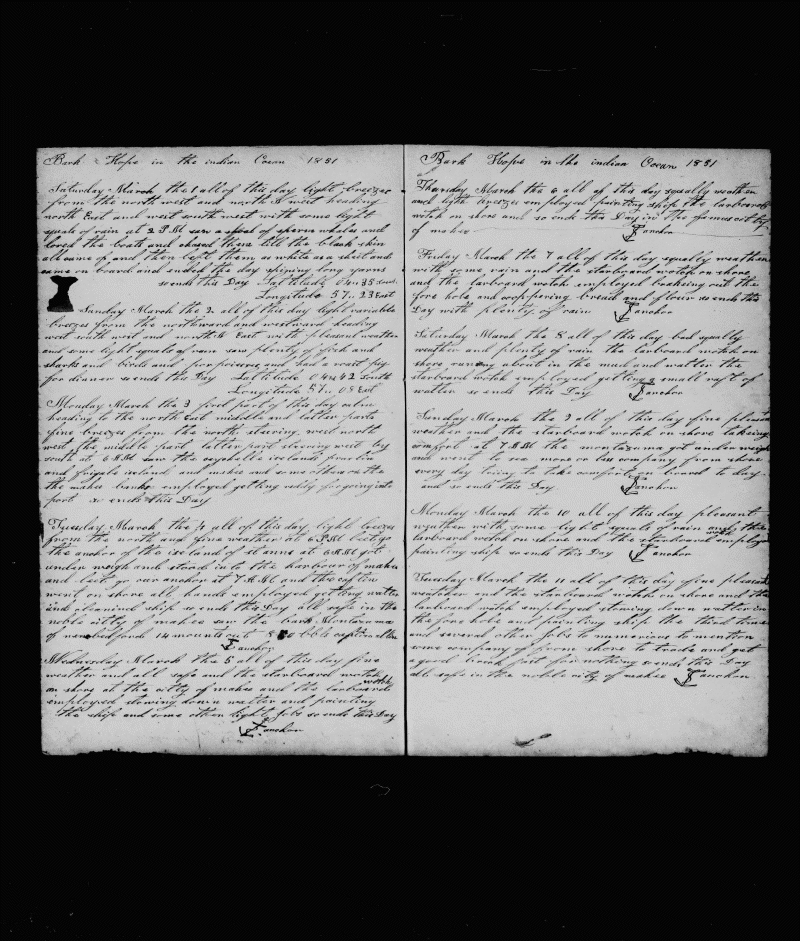 Bark Hope in the indian Ocean 1851
Saturday March the 1 all of this day light breezes
from the north west and north N west heading
north East and west south west with some light
squals of rain at 2 PM saw a shoal of sperm whales and
lowed the boats and chased them till the black skin
all came of and then left them as white as a sheet and
came on board and ended the day spining long yarns
so ends this Day Lattitude 04 35 South
Longitude 57 23 East
Sunday March the 2 all of this day light variable
breezes from the northward and westward heading
west south west and north N East with pleasant weather
and some light squals of rain saw plenty of fish and
sharks and birds and porpoises and had a roast pig
for dinner so ends the Day Lattitude 04 42 South
Longitude 57 08 East
Monday March the 3 first part of this day calm
heading to the north East middle and latter parts
fine breezes from the north stearing west north
west the middle part latter part stearing west by
south at 6 AM saw the seychelle islands praslin
and frigate island and mahee and some others on the
the mahee banks employed getting redily for going into
port so ends this Day
Tuesday March the 4 all of this day light breezes
from the north and fine weather at 6 PM let go
the anchor of the island of st anns at 6 AM got
under weigh and stood into the harbour of mahee
and let go our anchor at 7 AM and the captin
went on shore all hands employed getting watter
and cleanind ship so ends the Day all safe in the
noble citty of mahee saw the bark Montezuma
of new bedford 14 mounts out 80 bbls captin allen
anchor
Wednesday March the 5 all of this day fine
weather and all safe and the starboard watch
on shore at the citty of mahee and the larboard watch
employed stowing down watter and painting
the ship and some other light Jobs so ends this Day
anchor
Bark Hope in the indian Ocean 1851
Thursday March the 6 all of this day squally weather
and light breezes employed painting ship the larboard
watch on shore and so ends the Day in the famous city
of mahee anchor
Friday March the 7 all of this day squally weather
with some rain and the starboard watch on shore
and the larboard watch employed breaking out the
fore hole and coopering bread and flour so ends this
Day with plenty of rain anchor
Saturday March the 8 all of this day bad squally
weather and plenty of rain the larboard watch on
shore runing about in the mud and watter the
starboard watch employed getting a small raft of
watter so ends this Day anchor
Sunday March the 9 all of this day fine pleasant
weather and the starboard watch on shore takeing
comfort at 7 AM the montazuma got under weigh
and went to sea more or less company from shore
every day trieing to take comfort on board to day
and so ends this Day anchor
Monday March the 10 all of this day pleasant
weather with some light squals of rain and the
larboard watch on shore and the starboard watch employed
painting ship so ends this Day anchor
Tuesday March the 11 all of this day fine pleasant
weather and the starboard watch on shore and the
larboard watch employed stowing down watter in
the fore hole and painting ship the third time
and several other Jobs to numerious to mention
some company of from shore to trade and get
a good breck fast for nothing so ends this Day
all safe in the noble city of mahee anchor